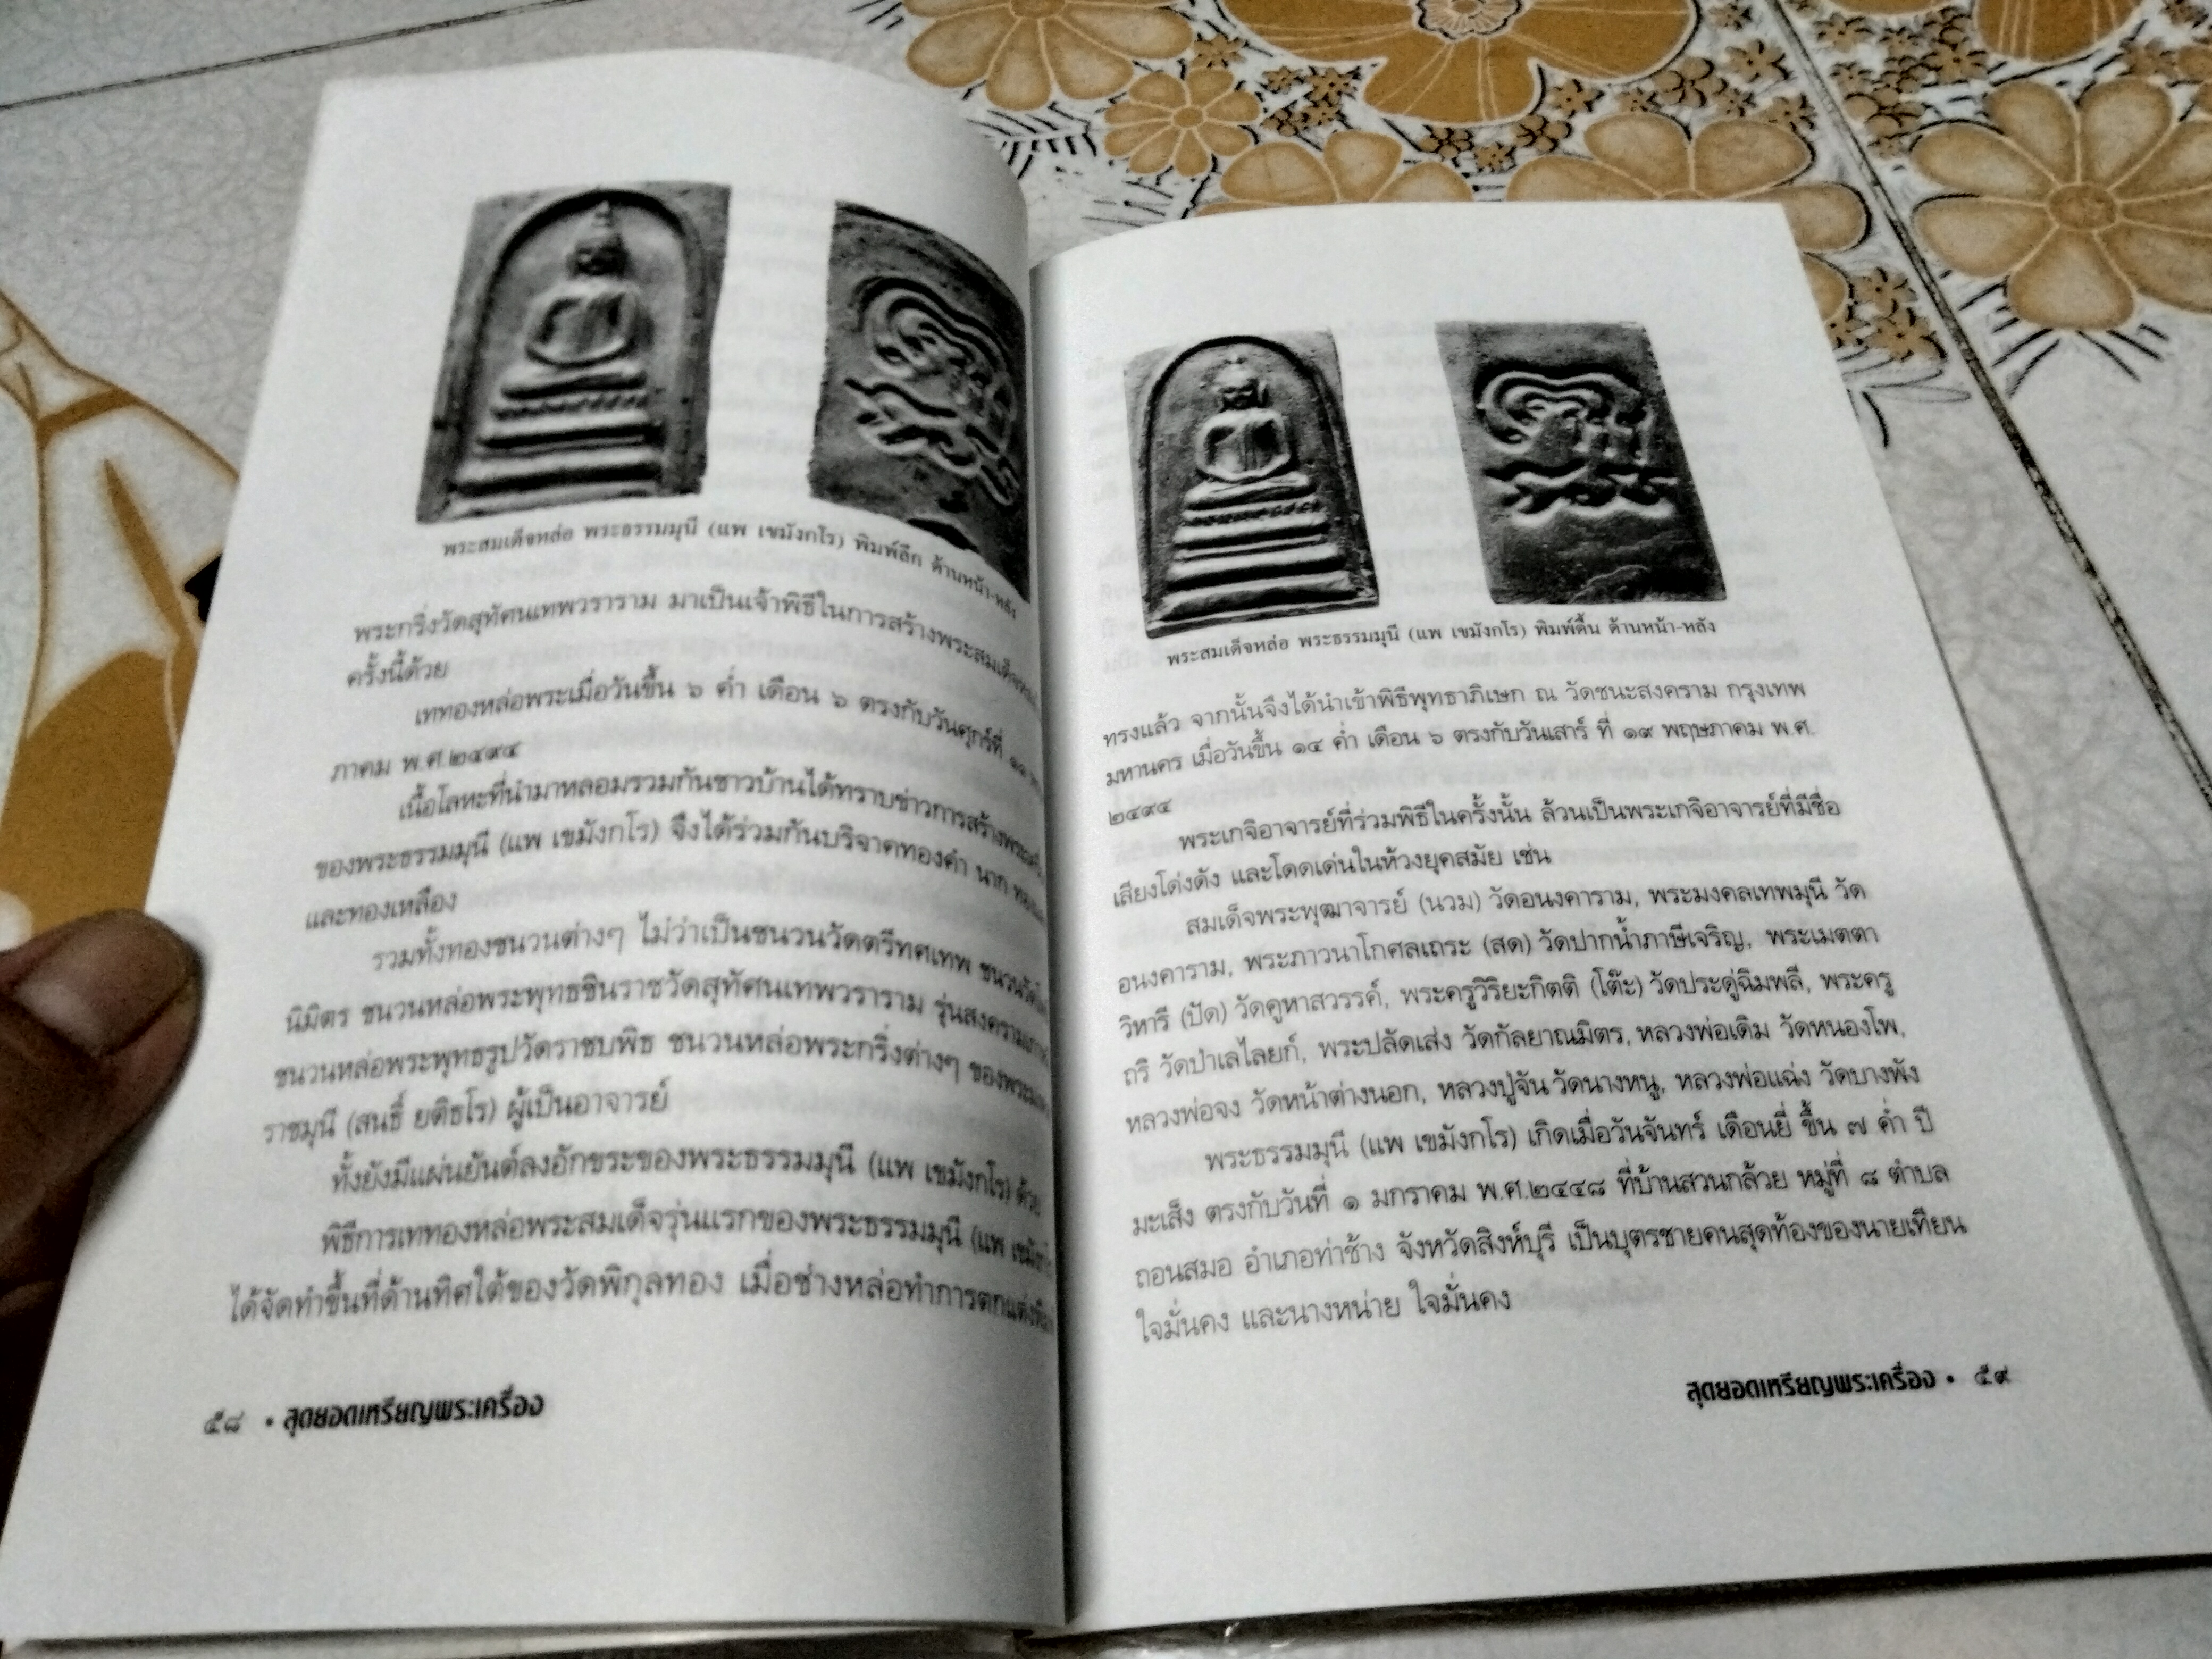 พระสมเด็จหล่อ พระธรรมมุนี (แพ เขมังกโร) พิมพ์ลึก ด้านหน้า-หลัง
พระกริ่งวัดสุทัศนเทพวราราม มาเป็นเจ้าพิธีในการสร้างพระสมเด็จหล่อ
ครั้งนี้ด้วย
เททองหล่อพระเมื่อวันขึ้น ๖ ค่ำ เดือน ๖ ตรงกับวันศุกร์ที่
ภาคม พ.ศ.๒๔๙๔
เนื้อโลหะที่นำมาหลอมรวมกันชาวบ้านได้ทราบข่าวการสร้างพระ
ของพระธรรมมุนี (แพ เขมังกโร) จึงได้ร่วมกันบริจาคทองคำ นาก
และทองเหลือง
รวมทั้งทองชนวนต่างๆ ไม่ว่าเป็นชนวนวัดตรีทศเทพ
นิมิตร ชนวนหล่อพระพุทธชินราชวัดสุทัศนเทพวราราม รุ่นสงคราม
ชนวนหล่อพระพุทธรูปวัดราชบพิธ ชนวนหล่อพระกริ่งต่างๆ
ราชมุนี (สนธิ์ ยติธโร) ผู้เป็นอาจารย์
ทั้งยังมีแผ่นยันต์ลงอักขระของพระธรรมมุนี (แพ เขมังกโร) ด้วย
พิธีการเททองหล่อพระสมเด็จรุ่นแรกของพระธรรมมุนี (แพ
ได้จัดทำขึ้นที่ด้านทิศใต้ของวัดพิกุลทอง เมื่อช่างหล่อทำการตกแต่ง
๕๘ • สุดยอดเหรียญพระเครื่อง
พระสมเด็จหล่อ พระธรรมมุนี (แพ เขมังกโร) พิมพ์ตื้น ด้านหน้า-หลัง
ทรงแล้ว จากนั้นจึงได้นำเข้าพิธีพุทธาภิเษก ณ วัดชนะสงคราม กรุงเทพ
มหานคร เมื่อวันขึ้น ๑๔ ค่ำ เดือน ๖ ตรงกับวันเสาร์ ที่ ๑๙ พฤษภาคม พ.ศ.
๒๔๙๔
พระเกจิอาจารย์ที่ร่วมพิธีในครั้งนั้น ล้วนเป็นพระเกจิอาจารย์ที่มีชื่อ
เสียงโด่งดัง และโดดเด่นในห้วงยุคสมัย เช่น
สมเด็จพระพุฒาจารย์ (นวม) วัดอนงคาราม, พระมงคลเทพมุนี วัด
อนงคาราม, พระภาวนาโกศลเถระ (สด) วัดปากน้ำภาษีเจริญ, พระเมตตา
วิหารี (ปัด) วัดคูหาสวรรค์, พระครูวิริยะกิตติ (โต๊ะ) วัดประดู่ฉิมพลี, พระครู
ถริ วัดป่าเลไลยก์, พระปลัดเส่ง วัดกัลยาณมิตร, หลวงพ่อเดิม วัดหนองโพ,
หลวงพ่อจง วัดหน้าต่างนอก, หลวงปู่จัน วัดนางหนู, หลวงพ่อแฉ่ง วัดบางพัง
พระธรรมมุนี (แพ เขมังกโร) เกิดเมื่อวันจันทร์ เดือนยี่ ขึ้น ๗ ค่ำ ปี
มะเส็ง ตรงกับวันที่ ๑ มกราคม พ.ศ.๒๔๔๘ ที่บ้านสวนกล้วย หมู่ที่ ๘ ตำบล
ถอนสมอ อำเภอท่าช้าง จังหวัดสิงห์บุรี เป็นบุตรชายคนสุดท้องของนายเทียน
ใจมั่นคง และนางหน่าย ใจมั่นคง
สุดยอดเหรียญพระเครื่อง • ๕๙